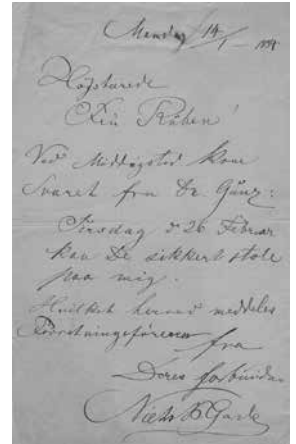 Mandag 14/1
Højstærede
Ved Middagstid kom
Svaret fra Dr. Günz:
Tirsdag d 26 Februar
kan De sikkert stole
paa mig.
Hvilket herved meddeles
Forretningsføreren
fra
Deres forbundne
Niels W. Gade